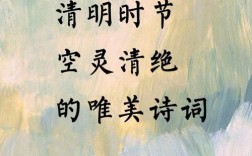 清明时节
空灵清绝
的唯美诗词